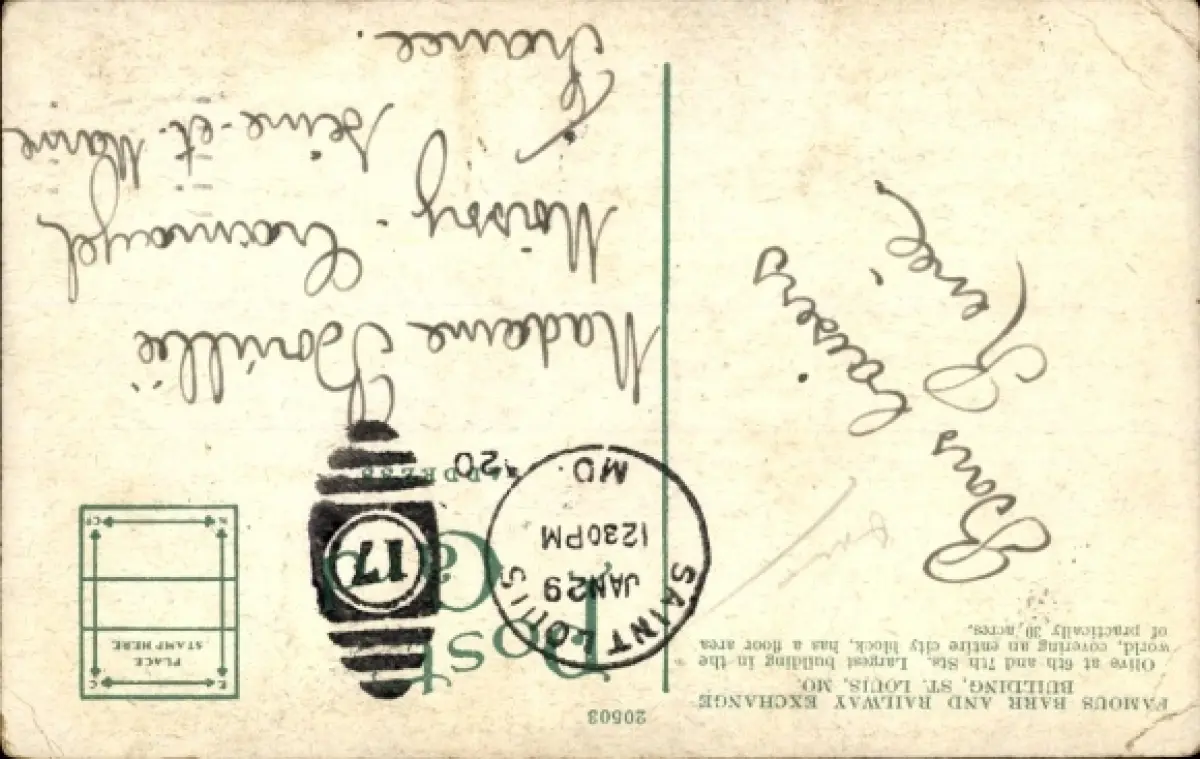 FAMOUS BARR AND RAILWAY EXCHANGE
BUILDING, ST. LOUIS, MO
Olive at 6th and 7th Sts. Largest building in the
world, covering an entire city block, has a floor area
of practically 30 acres.
20503
Post Card
ADDRESS
PLACE
STAMP HERE
SAINT LOUIS
JAN 29
1230PM
MO.
20
17
Bons
baisers
Madame
Moissy - Cramayel
Seine-et-Marne
France.